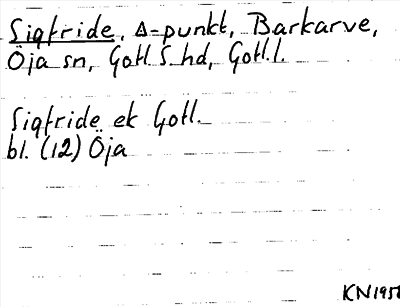 Sigfride, Δ-punkt, Barkarve,
Öja sn, Gotl. S. hd, Gotl. l.
Sigfride ek Gotl.
bl. (12) Öja